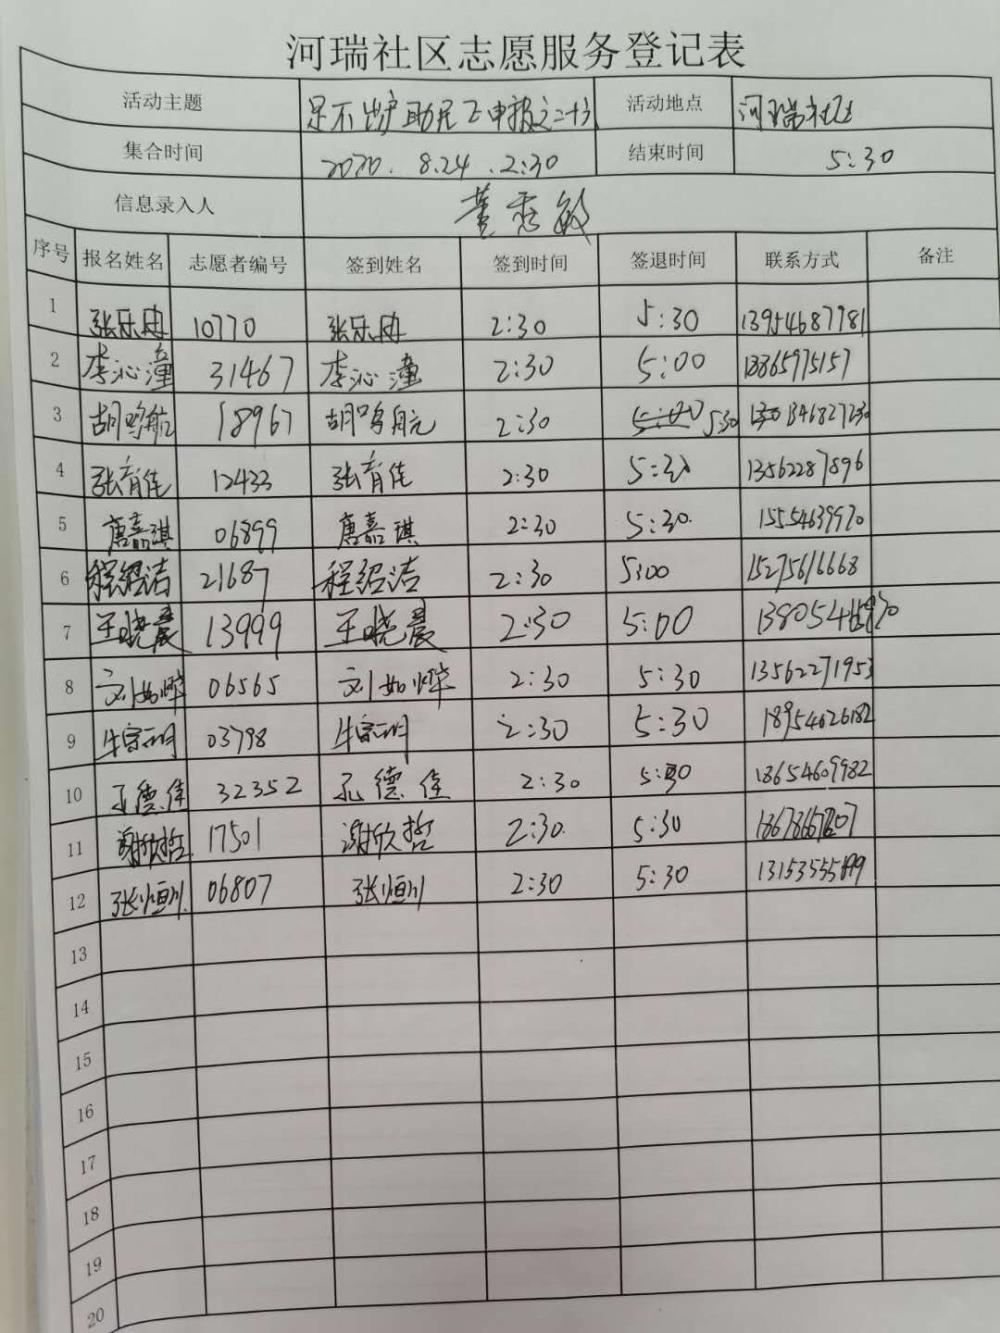 河瑞社区志愿服务登记表
活动主题 足不出户助民 申报之二十六 活动地点 河瑞社区
集合时间 2020.8.24.2:30 结束时间 5:30
信息录入人 董秀敏
序号 报名姓名 志愿者编号 签到姓名 签到时间 签退时间 联系方式 备注
1 张乐冉 10770 张乐冉 2:30 5:30 13954687781
2 李沁潼 31467 李沁潼 2:30 5:00 18865975157
3 胡鸣航 18967 胡鸣航 2:30 5:30
4 张育佳 12433 张育佳 2:30 5:30 13562287896
5 唐嘉琪 06899 唐嘉琪 2:30 5:30. 15554639970
6 程绍洁 21687 程绍洁 2:30 5:00 15275616668
7 王晓晨 13999 王晓晨 2:30 5:00
8 刘如烨 06565 刘如烨 2:30 5:30 13562271953
9 牛宗明 03798 牛宗明 2:30 5:30 18954626182
10 孔德佳 32352 孔德佳 2:30 5:30 18654609982
11 谢欣哲 17501 谢欣哲 2:30. 5:30
12 张恒川 06807 张恒川 2:30 5:30
13
14
15
16
17
18
19
20